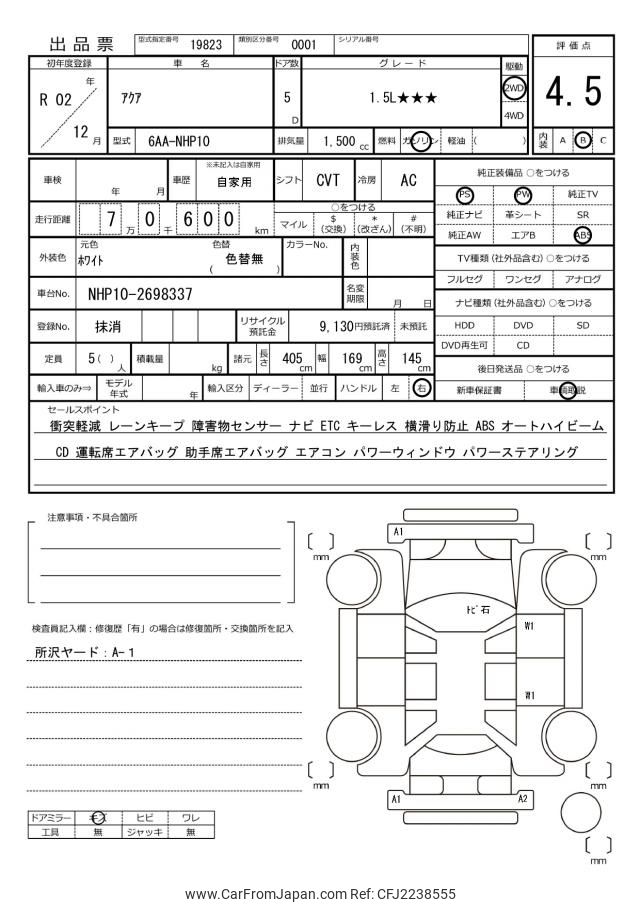 出品票 型式指定番号 19823 類別区分番号 0001 シリアル番号
評価点
4.5
内装 A B C
初年度登録 車名 ドア数 グレード 駆動
R 02 年 12 月 ｱｸｱ 5 D 1.5L★★★ 2WD 4WD
型式 6AA-NHP10 排気量 1,500 cc 燃料 ガソリン 軽油 ( )
車検 年 月 車歴 ※未記入は自家用 自家用 シフト CVT 冷房 AC
走行距離 7 万 0 千 6 0 0 km
○をつける
マイル $ (交換) * (改ざん) # (不明)
外装色 元色 ﾎﾜｲﾄ 色替 ( 色替無 ) カラーNo. 内装色
車台No. NHP10-2698337 名変期限 月 日
登録No. 抹消 リサイクル預託金 9,130円預託済 未預託
定員 5 ( ) 人 積載量 kg 諸元 長さ 405 cm 幅 169 cm 高さ 145 cm
輸入車のみ⇒ モデル年式 年 輸入区分 ディーラー 並行 ハンドル 左 右
純正装備品 ○をつける
PS PW 純正TV
純正ナビ 革シート SR
純正AW エアB ABS
TV種類 (社外品含む) ○をつける
フルセグ ワンセグ アナログ
ナビ種類 (社外品含む) ○をつける
HDD DVD SD
DVD再生可 CD
後日発送品 ○をつける
新車保証書 車輌取説
セールスポイント
衝突軽減 レーンキープ 障害物センサー ナビ ETC キーレス 横滑り防止 ABS オートハイビーム
CD 運転席エアバッグ 助手席エアバッグ エアコン パワーウィンドウ パワーステアリング
注意事項・不具合箇所
検査員記入欄：修復歴「有」の場合は修復箇所・交換箇所を記入
所沢ヤード：A-1
ドアミラー キズ ヒビ ワレ
工具 無 ジャッキ 無
A1
mm
mm
ﾄﾋﾞ石
W1
W1
mm
mm
A1 A2
mm
www.CarFromJapan.com Ref: CFJ2238555